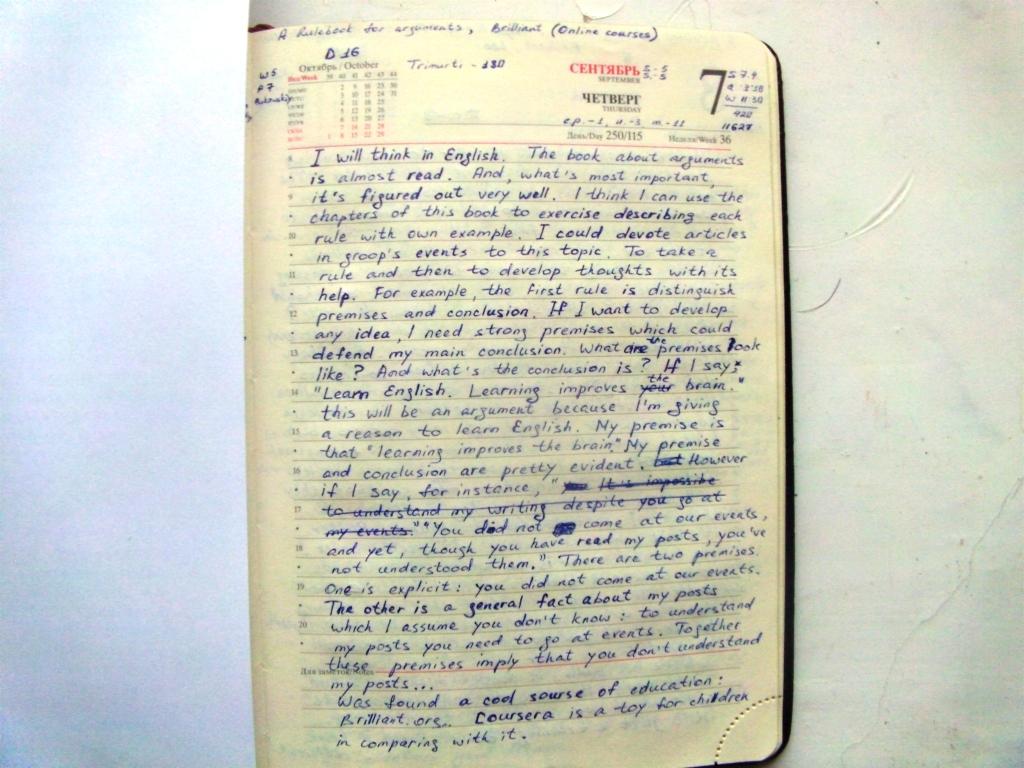 A Rulebook for arguments, Brilliant (Online courses)
D 16
Октябрь / October
Trimurti - 180
СЕНТЯБРЬ 5 - 5
SEPTEMBER 5 - 5
7
ЧЕТВЕРГ
THURSDAY
W 11:50
920
11627
W5
A7
Нед/Week 39 40 41 42 43 44
2 9 16 23 30
3 10 17 24 31
4 11 18 25
5 12 19 26
6 13 20 27
7 14 21 28
1 8 15 22 29
ср. - 1, и. - 3 т. - 11
День/Day 250/115 Неделя/Week 36
8 I will think in English. The book about arguments
is almost read. And, what's most important,
9 it's figured out very well. I think I can use the
chapters of this book to exercise describing each
10 rule with own example. I could devote articles
in groop's events to this topic. To take a
11 rule and then to develop thoughts with its
help. For example, the first rule is distinguish
12 premises and conclusion. If I want to develop
any idea, I need strong premises which could
13 defend my main conclusion. What are the premises look
like? And what's the conclusion is? If I say:
14 "Learn English. Learning improves your the brain."
this will be an argument because I'm giving
15 a reason to learn English. My premise is
that "learning improves the brain." My premise
16 and conclusion are pretty evident. but However
if I say, for instance, " It's impossibe
17 to understand my writing despite you go at
my events." "You did not come at our events,
18 and yet, though you have read my posts, you've
not understood them." There are two premises.
19 One is explicit: you did not come at our events.
The other is a general fact about my posts
20 which I assume you don't know: to understand
my posts you need to go at events. Together
Для заметок/Notes these premises imply that you don't understand
my posts...
Was found a cool sourse of education:
Brilliant.org.. Coursera is a toy for children
in comparing with it.